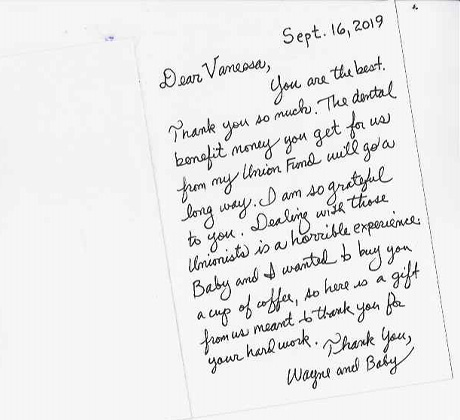 Sept. 16, 2019
Dear Vanessa,
You are the best.
Thank you so much. The dental
benefit money you get for us
from my Union Fund will go a
long way. I am so grateful
to you. Dealing with those
Unionists is a horrible experience.
Baby and I wanted to buy you
a cup of coffee, so here is a gift
from us meant to thank you for
your hard work. Thank You,
Wayne and Baby